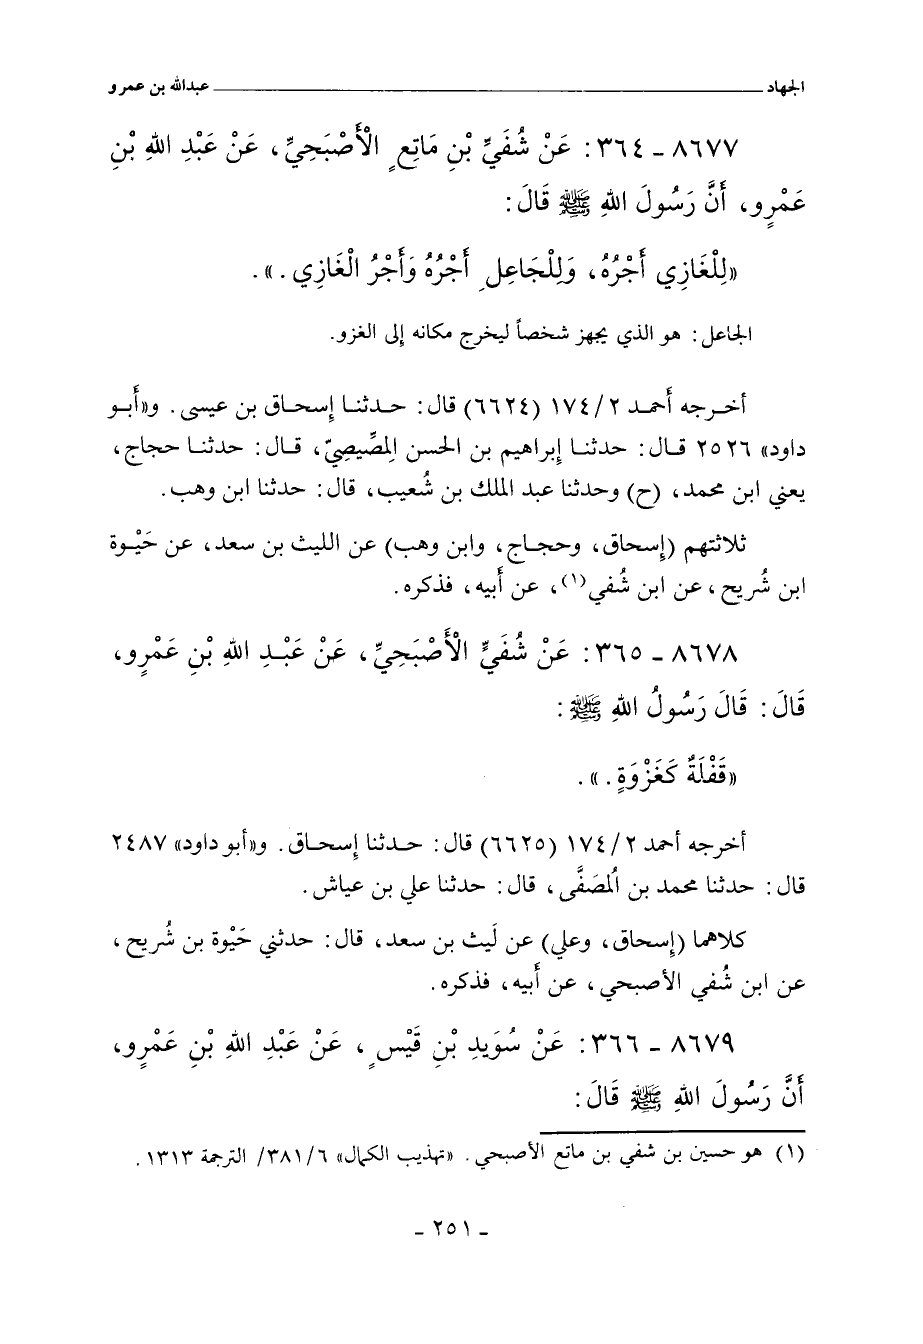 الجهاد ـــــ عبدالله بن عمرو
٨٦٧٧ ـ ٣٦٤: عَنْ شُفَيِّ بْنِ مَاتِعٍ الْأَصْبَحِيِّ، عَنْ عَبْدِ اللهِ بْنِ
عَمْرٍو، أَنَّ رَسُولَ اللهِ ﷺ قَالَ:
«لِلْغَازِي أَجْرُهُ، وَلِلْجَاعِلِ أَجْرُهُ وَأَجْرُ الْغَازِي.».
الجاعل: هو الذي يجهز شخصاً ليخرج مكانه إلى الغزو.
أخرجه أَحمد ٢/١٧٤ (٦٦٢٤) قال: حدثنا إِسحاق بن عيسى. و«أَبو
داود» ٢٥٢٦ قال: حدثنا إِبراهيم بن الحسن المِصِّيصِيّ، قال: حدثنا حجاج،
يعني ابن محمد، (ح) وحدثنا عبد الملك بن شُعيب، قال: حدثنا ابن وهب.
ثلاثتهم (إِسحاق، وحجاج، وابن وهب) عن الليث بن سعد، عن حَيْوة
ابن شُريح، عن ابن شُفي(١)، عن أَبيه، فذكره.
٨٦٧٨ ـ ٣٦٥: عَنْ شُفَيٍّ الْأَصْبَحِيِّ، عَنْ عَبْدِ اللهِ بْنِ عَمْرٍو،
قَالَ: قَالَ رَسُولُ اللهِ ﷺ:
«قَفْلَةٌ كَغَزْوَةٍ.».
أخرجه أحمد ٢/١٧٤ (٦٦٢٥) قال: حدثنا إِسحاق. و«أبو داود» ٢٤٨٧
قال: حدثنا محمد بن المُصَفَّى، قال: حدثنا علي بن عياش.
كلاهما (إِسحاق، وعلي) عن لَيث بن سعد، قال: حدثني حَيْوة بن شُريح،
عن ابن شُفي الأصبحي، عن أَبيه، فذكره.
٨٦٧٩ ـ ٣٦٦: عَنْ سُوَيدِ بْنِ قَيْسٍ، عَنْ عَبْدِ اللهِ بْنِ عَمْرٍو،
أَنَّ رَسُولَ اللهِ ﷺ قَالَ:
(١) هو حسين بن شفي بن ماتع الأصبحي. «تهذيب الكمال» ٦/٣٨١/ الترجمة ١٣١٣.
ـ ٢٥١ ـ